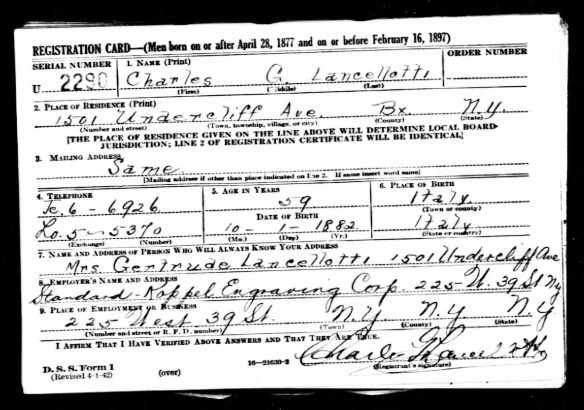 REGISTRATION CARD—(Men born on or after April 28, 1877 and on or before February 16, 1897)
SERIAL NUMBER 1. NAME (Print) ORDER NUMBER
U 2290 Charles G. Lancellotti
(First) (Middle) (Last)
2. PLACE OF RESIDENCE (Print)
1501 Undercliff Ave. Bx. N.Y.
(Number and street) (Town, township, village, or city) (County) (State)
[THE PLACE OF RESIDENCE GIVEN ON THE LINE ABOVE WILL DETERMINE LOCAL BOARD
JURISDICTION; LINE 2 OF REGISTRATION CERTIFICATE WILL BE IDENTICAL]
3. MAILING ADDRESS
Same
[Mailing address if other than place indicated on line 2. If same insert word same]
4. TELEPHONE 5. AGE IN YEARS 6. PLACE OF BIRTH
6-6926 59 Italy
DATE OF BIRTH (Town or county)
Lo. 5-5370 10-1-1882 Italy
(Exchange) (Number) (Mo.) (Day) (Yr.) (State or country)
7. NAME AND ADDRESS OF PERSON WHO WILL ALWAYS KNOW YOUR ADDRESS
Mrs. Gertrude Lancellotti 1501 Undercliff Ave
8. EMPLOYER'S NAME AND ADDRESS
Standard-Koppel Engraving Corp. 225 W. 39 St NY
9. PLACE OF EMPLOYMENT OR BUSINESS
225 West 39 St. N.Y N.Y. N.Y
(Number and street or R. F. D. number) (Town) (County) (State)
I AFFIRM THAT I HAVE VERIFIED ABOVE ANSWERS AND THAT THEY ARE TRUE.
D. S. S. Form 1 16—21630-2 Charles G Lancellotti
(Revised 4-1-42) (over) (Registrant's signature)